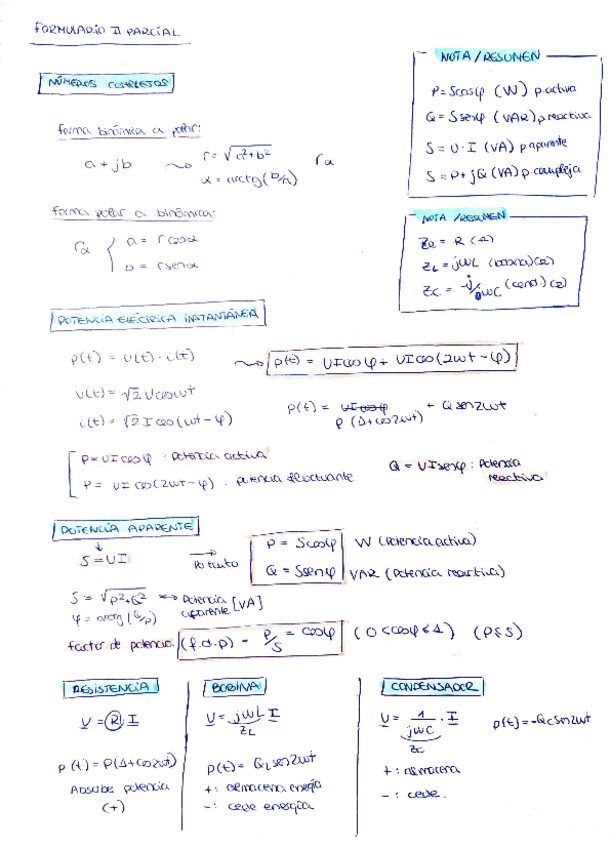 FORMULARIO II PARCIAL
NÚMEROS COMPLEJOS
forma binómica a polar:
a + jb ⟿ r = √(r²+b²) rα
α = arctg(b/a)
forma polar a binómica:
rα { a = r cosα
b = r senα
NOTA/RESUMEN
P = Scosφ (W) p.activa
Q = Ssenφ (VAR) p.reactiva
S = U·I (VA) p.aparente
S = P+jQ (VA) p.compleja
NOTA/RESUMEN
ZR = R (Ω)
ZL = jωL (bobina)(Ω)
ZC = -j/ωC (cond.)(Ω)
POTENCIA ELÉCTRICA INSTANTÁNEA
p(t) = u(t)·i(t) ⟿ p(t) = UIcosφ + UIcos(2ωt-φ)
u(t) = √2 Ucosωt
i(t) = √2 I cos(ωt-φ)
p(t) = UIcosφ + Qsen2ωt
P(1+cos2ωt)
P = UIcosφ : Potencia activa
P = UIcos(2ωt-φ) : potencia fluctuante
Q = UIsenφ : Potencia
reactiva
POTENCIA APARENTE
↓
S = UI → Por tanto
P = Scosφ W (Potencia activa)
Q = Ssenφ VAR (Potencia reactiva)
S = √(P²+Q²) ⟿ Potencia
aparente [VA]
φ = arctg(Q/P)
factor de potencia (f.d.p) = P/S = cosφ (0≤cosφ≤1) (P≤S)
RESISTENCIA
U = R·I
p(t) = P(1+cos2ωt)
Absorbe potencia
(+)
BOBINA
U = jωL·I
ZL
p(t) = QLsen2ωt
+: almacena energía
-: cede energía
CONDENSADOR
U = 1/jωC · I p(t) = -QCsen2ωt
ZC
+: almacena
-: cede.